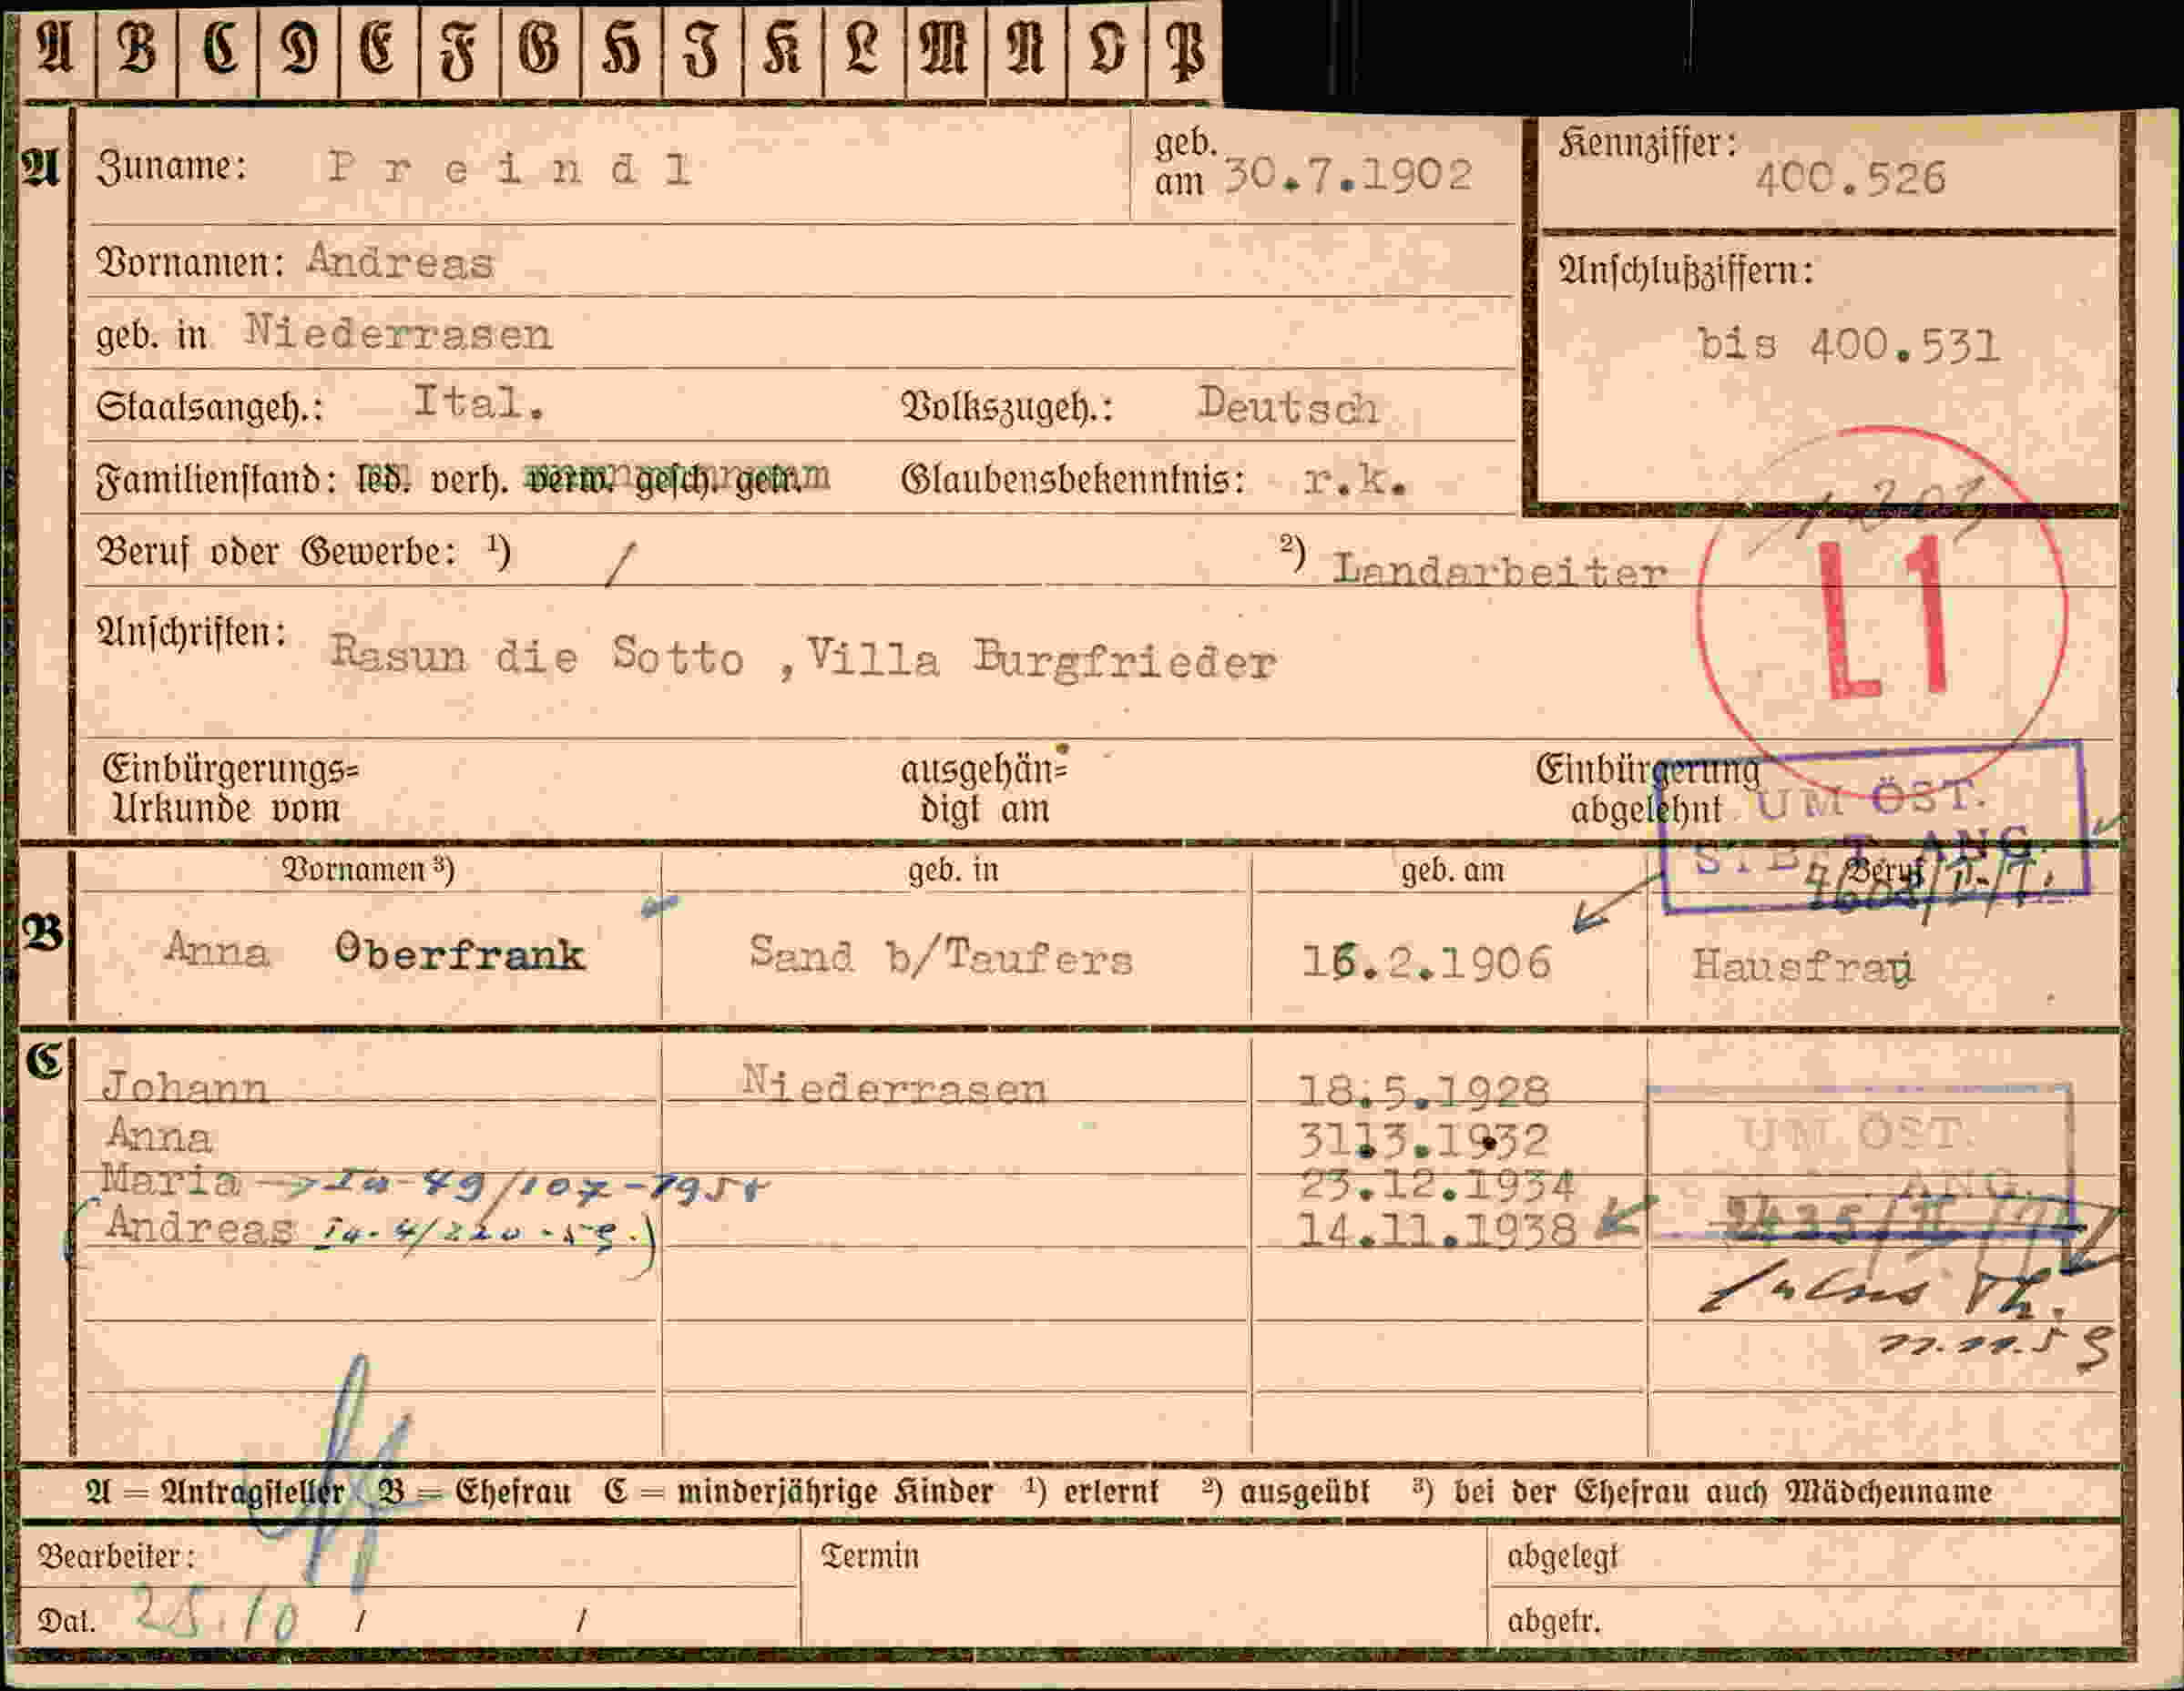 A B C D E F G H I K L M N O P
A Zuname: Preindl geb. am 30.7.1902 Kennziffer: 400.526
Vornamen: Andreas Anschlußziffern:
geb. in Niederrasen bis 400.531
Staatsangeh.: Ital. Volkszugeh.: Deutsch
Familienstand: led. verh. verw. gesch. getr. Glaubensbekenntnis: r.k.
Beruf oder Gewerbe: ¹) / ²) Landarbeiter
L1
Anschriften: Rasun die Sotto ,Villa Burgfrieder
Einbürgerungs= ausgehän= Einbürgerung
Urkunde vom digt am abgelehnt
UM ÖST.
ANG.
Vornamen ³) geb. in geb. am Beruf
B Anna Oberfrank Sand b/Taufers 16.2.1906 Hausfrau
C
Johann Niederrasen 18.5.1928
Anna 31.3.1932
UM ÖST.
Maria 23.12.1934
ANG.
Andreas 14.11.1938
A = Antragsteller B = Ehefrau C = minderjährige Kinder ¹) erlernt ²) ausgeübt ³) bei der Ehefrau auch Mädchenname
Bearbeiter: Termin abgelegt
Dat. 25.10 / / abgetr.